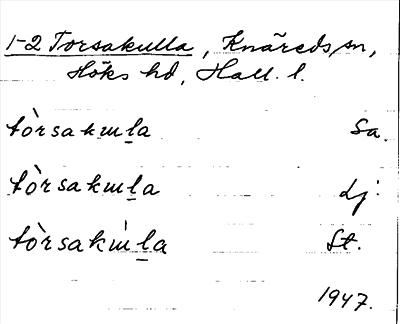 1-2 Torsakulla, Knäreds sn,
Höks hd, Hall. l.
tòrsakɯl̲a Sa.
tòrsakɯl̲a Lj.
tòrsakɯ̀l̲a St.
1947.